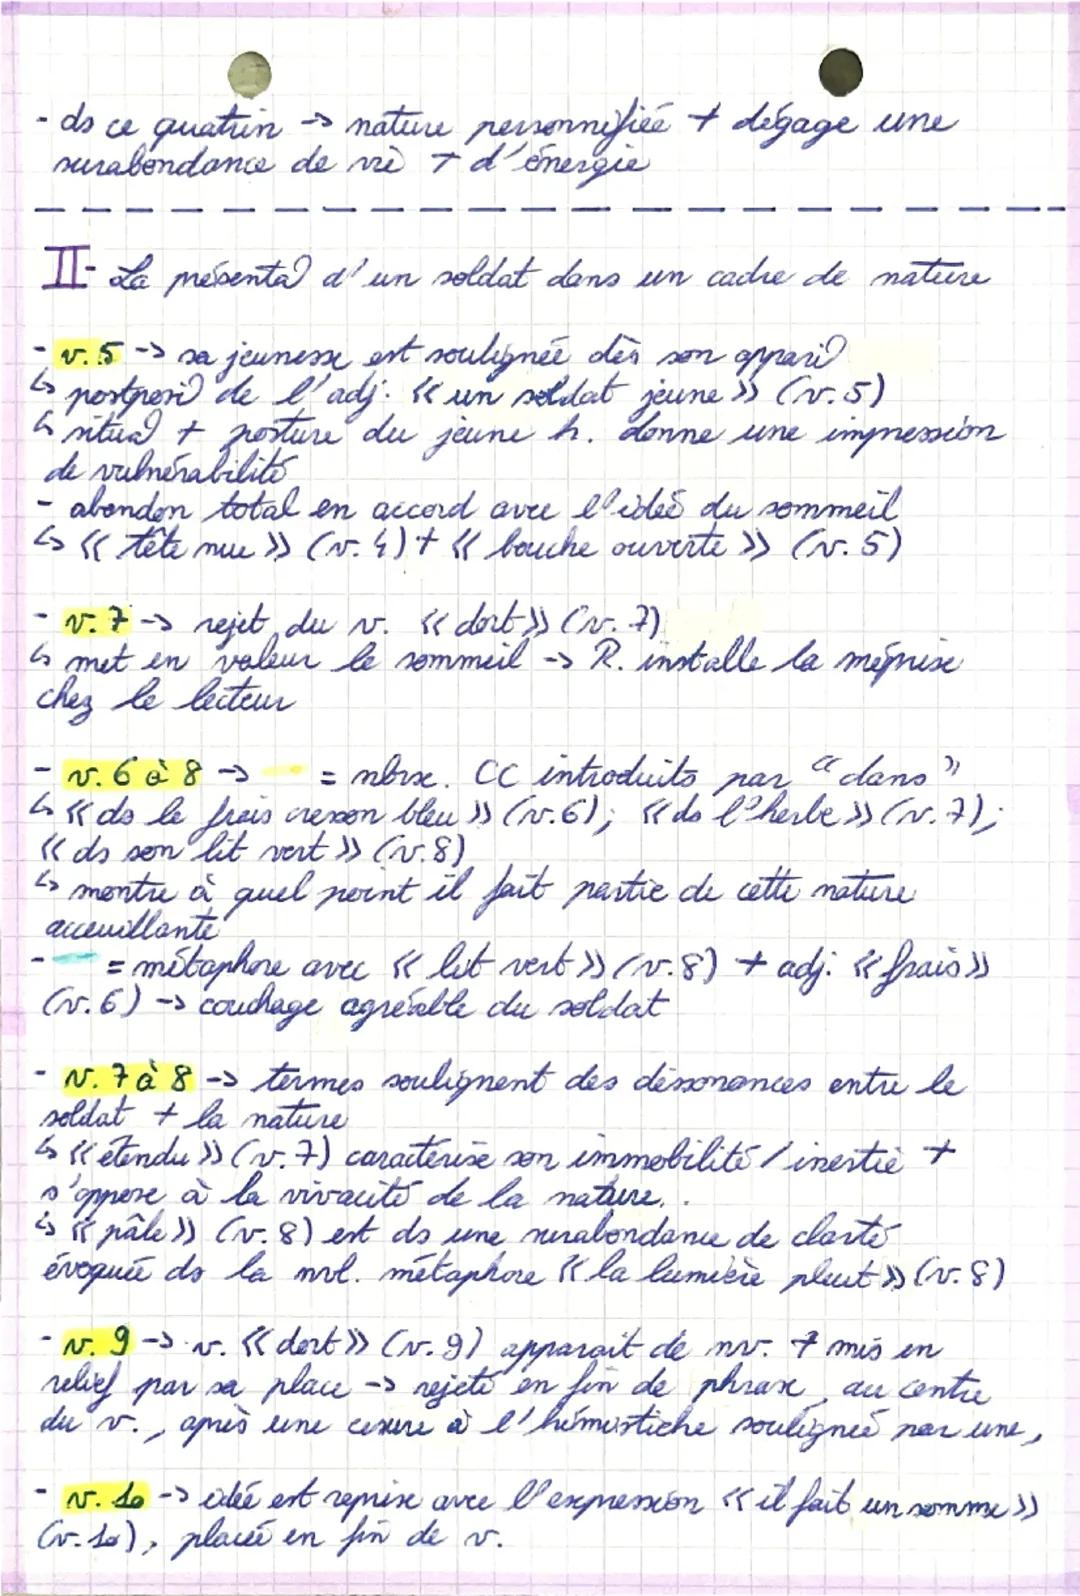 - ds ce quatrin -> nature personnifiée + dégage une
surabondance de vie + d'énergie
II- La présenta° d'un soldat dans un cadre de nature
- v.5 -> sa jeunesse est soulignée dès son appari°
↳ postposi° de l'adj. « un soldat jeune » (v.5)
↳ situa° + posture du jeune h. donne une impression
de vulnérabilité
- abandon total en accord avec l'idée du sommeil
↳ « tête nue » (v.4) + « bouche ouverte » (v.5)
- v.7 -> rejet du v. « dort » (v.7)
↳ met en valeur le sommeil -> R. installe la méprise
chez le lecteur
- v.6 à 8 -> = nbrx. CC introduits par "dans"
↳ « ds le frais cresson bleu » (v.6); « ds l'herbe » (v.7);
« ds son lit vert » (v.8)
↳ montre à quel point il fait partie de cette nature
acceuillante
- = métaphore avec « lit vert » (v.8) + adj. « frais »
(v.6) -> couchage agréable du soldat
- v.7 à 8 -> termes soulignent des dissonances entre le
soldat + la nature
↳ « étendu » (v.7) caractérise son immobilité / inertie +
s'oppose à la vivacité de la nature.
↳ « pâle » (v.8) est ds une surabondance de clarté
évoquée ds la nvl. métaphore « la lumière pleut » (v.8)
- v.9 -> v. « dort » (v.9) apparait de nv. + mis en
relief par sa place -> rejeté en fin de phrase, au centre
du v., après une césure à l'hémistiche soulignée par une,
- v.10 -> idée est reprise avec l'expression « il fait un somme »
(v.10), placée en fin de v.